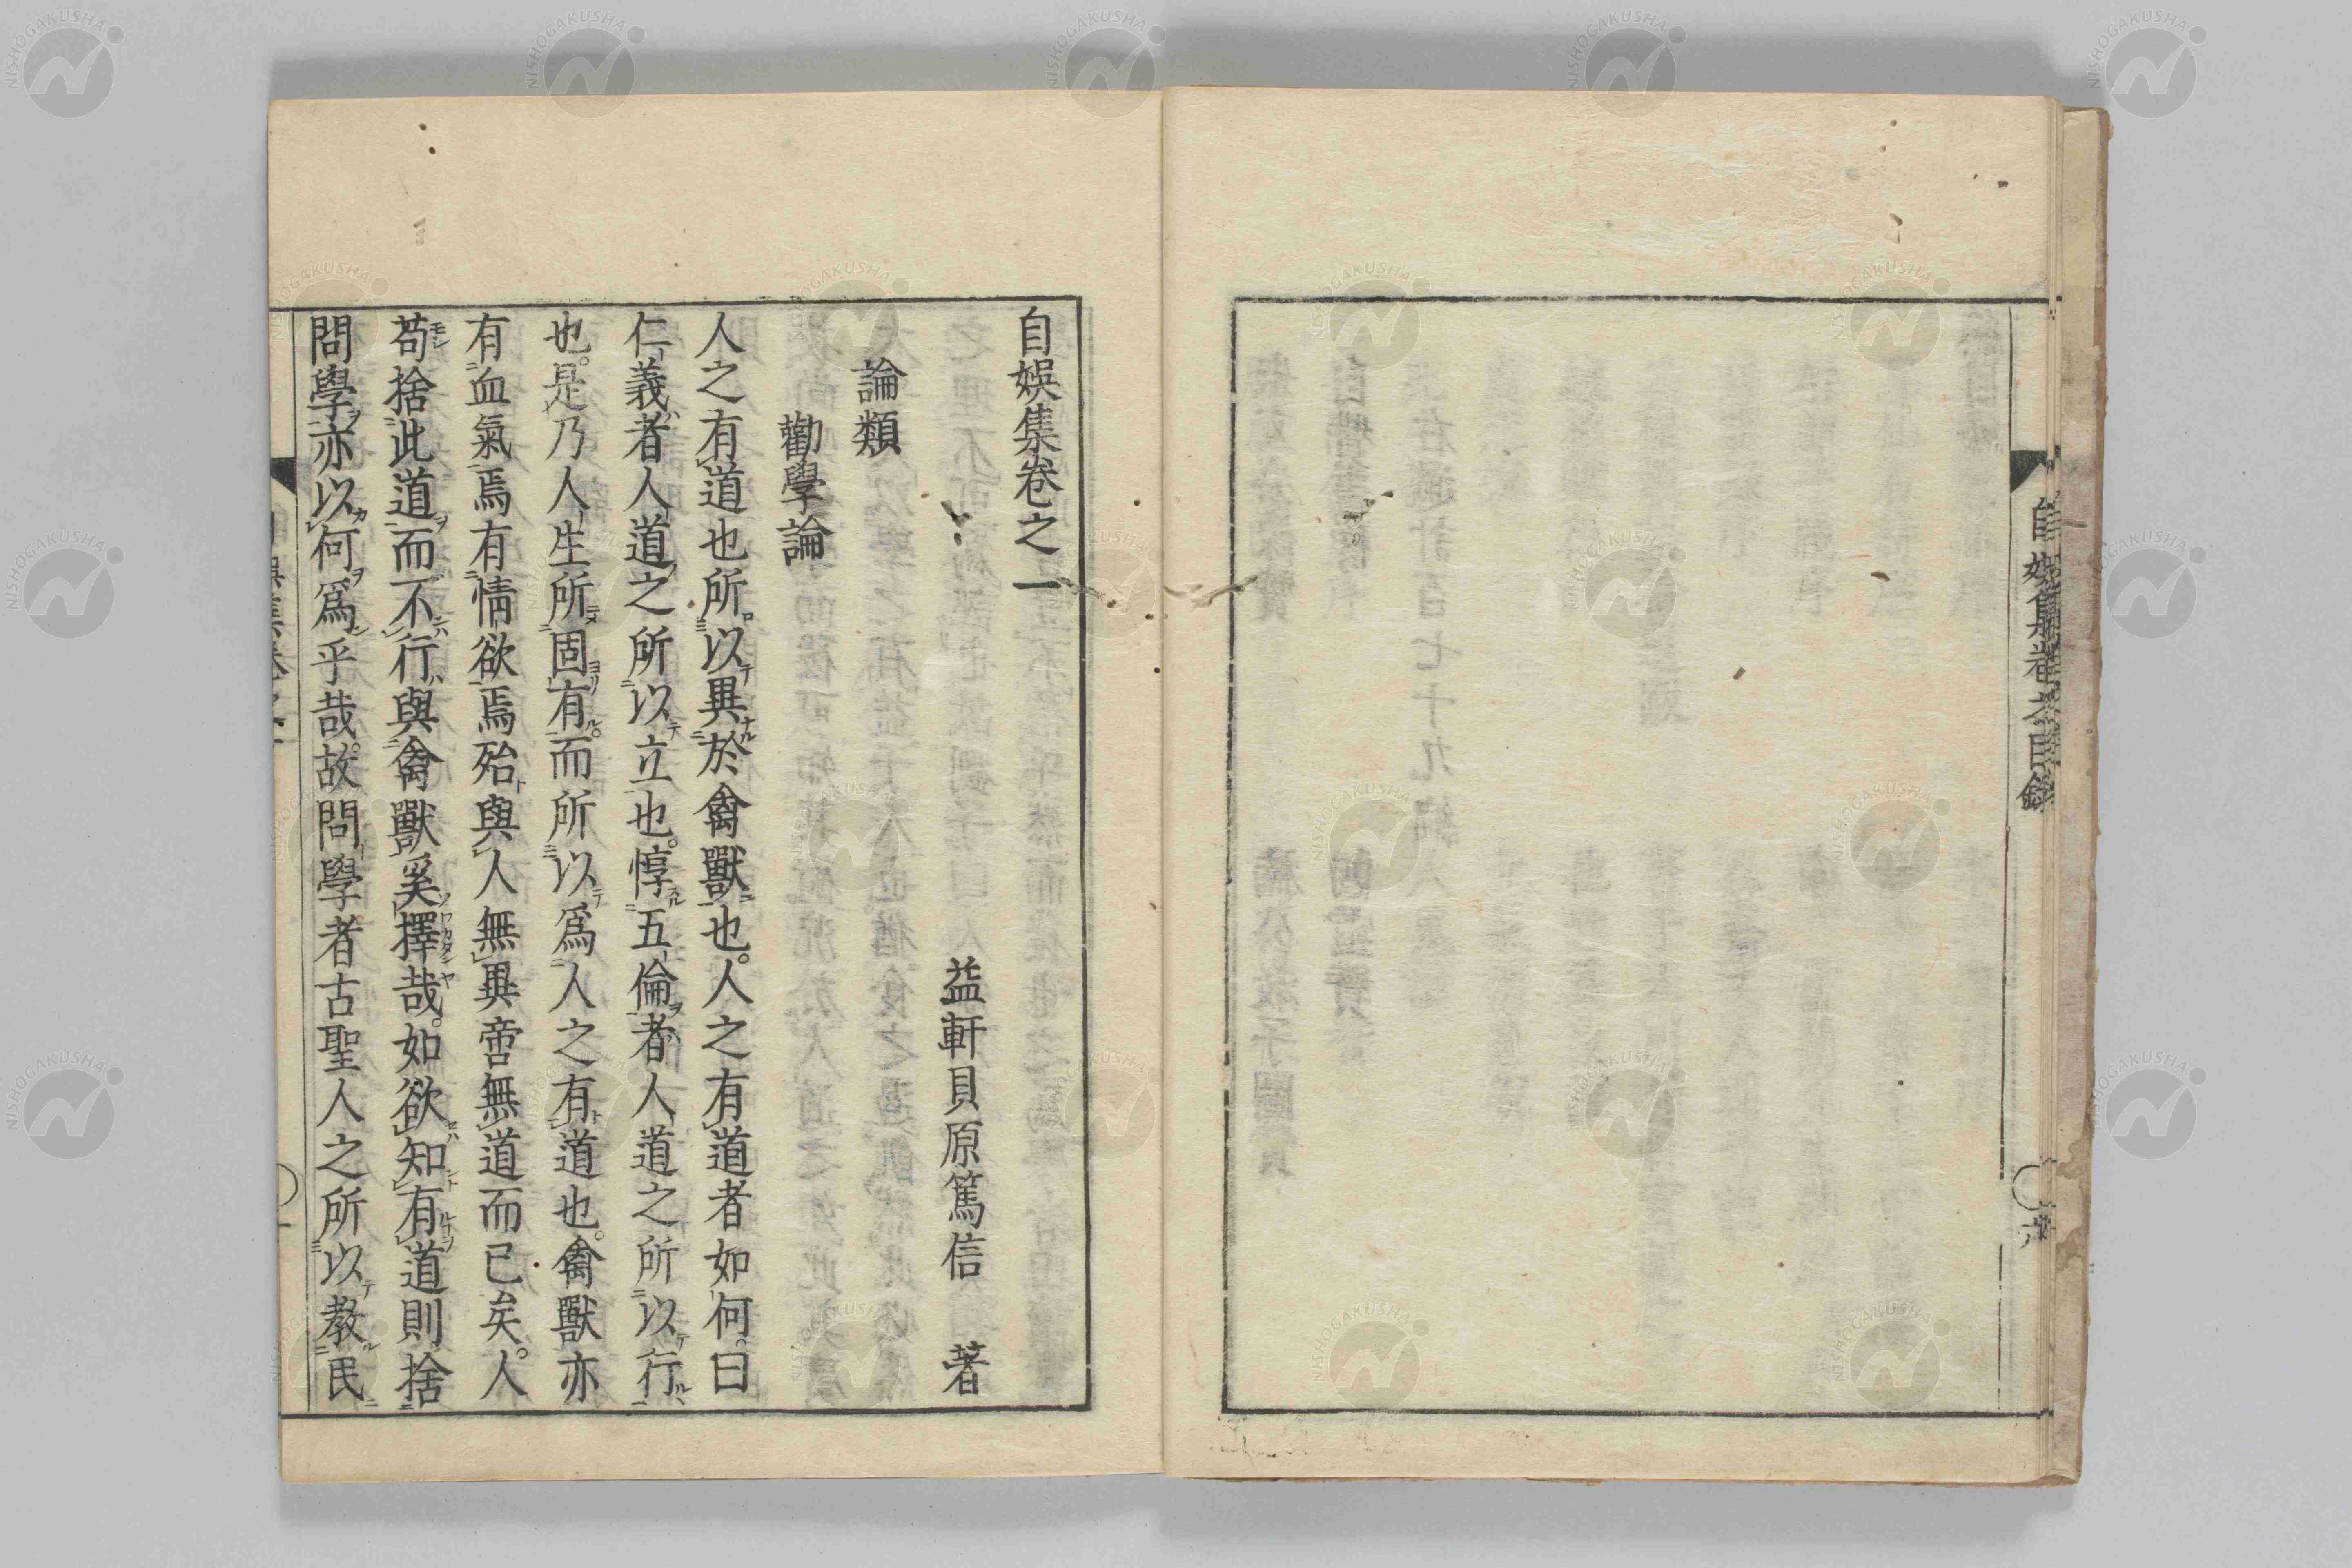 自娯集卷之一
益軒貝原篤信 著
論類
勸學論
人之有道也所以異於禽獸也。人之有道者如何。曰
仁義者人道之所以立也。惇五倫者人道之所以行
也。是乃人生所固有而所以爲人之有道也。禽獸亦
有血氣焉有情欲焉殆與人無異啻無道而已矣。人
苟捨此道而不行與禽獸奚擇哉。如欲知有道則捨
問學亦以何爲乎哉。故問學者古聖人之所以教民